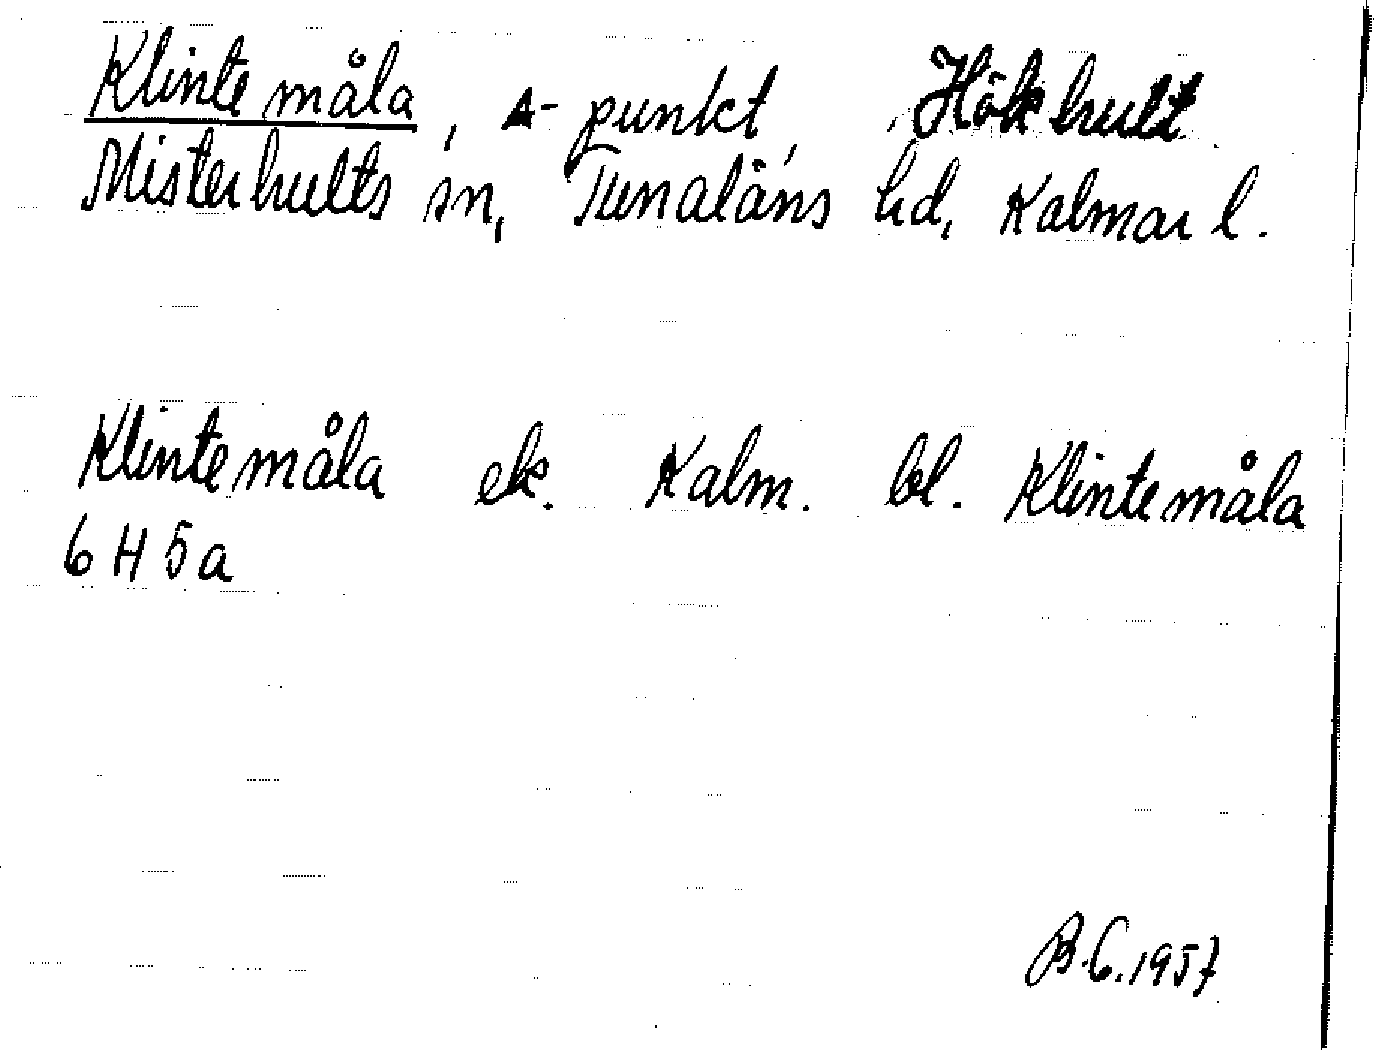 Klintemåla, A-punkt, Hökhult
Misterhults sn, Tunaläns hd, Kalmar l.
Klintemåla ek. Kalm. bl. Klintemåla
6 H 5 a
B.C. 1957